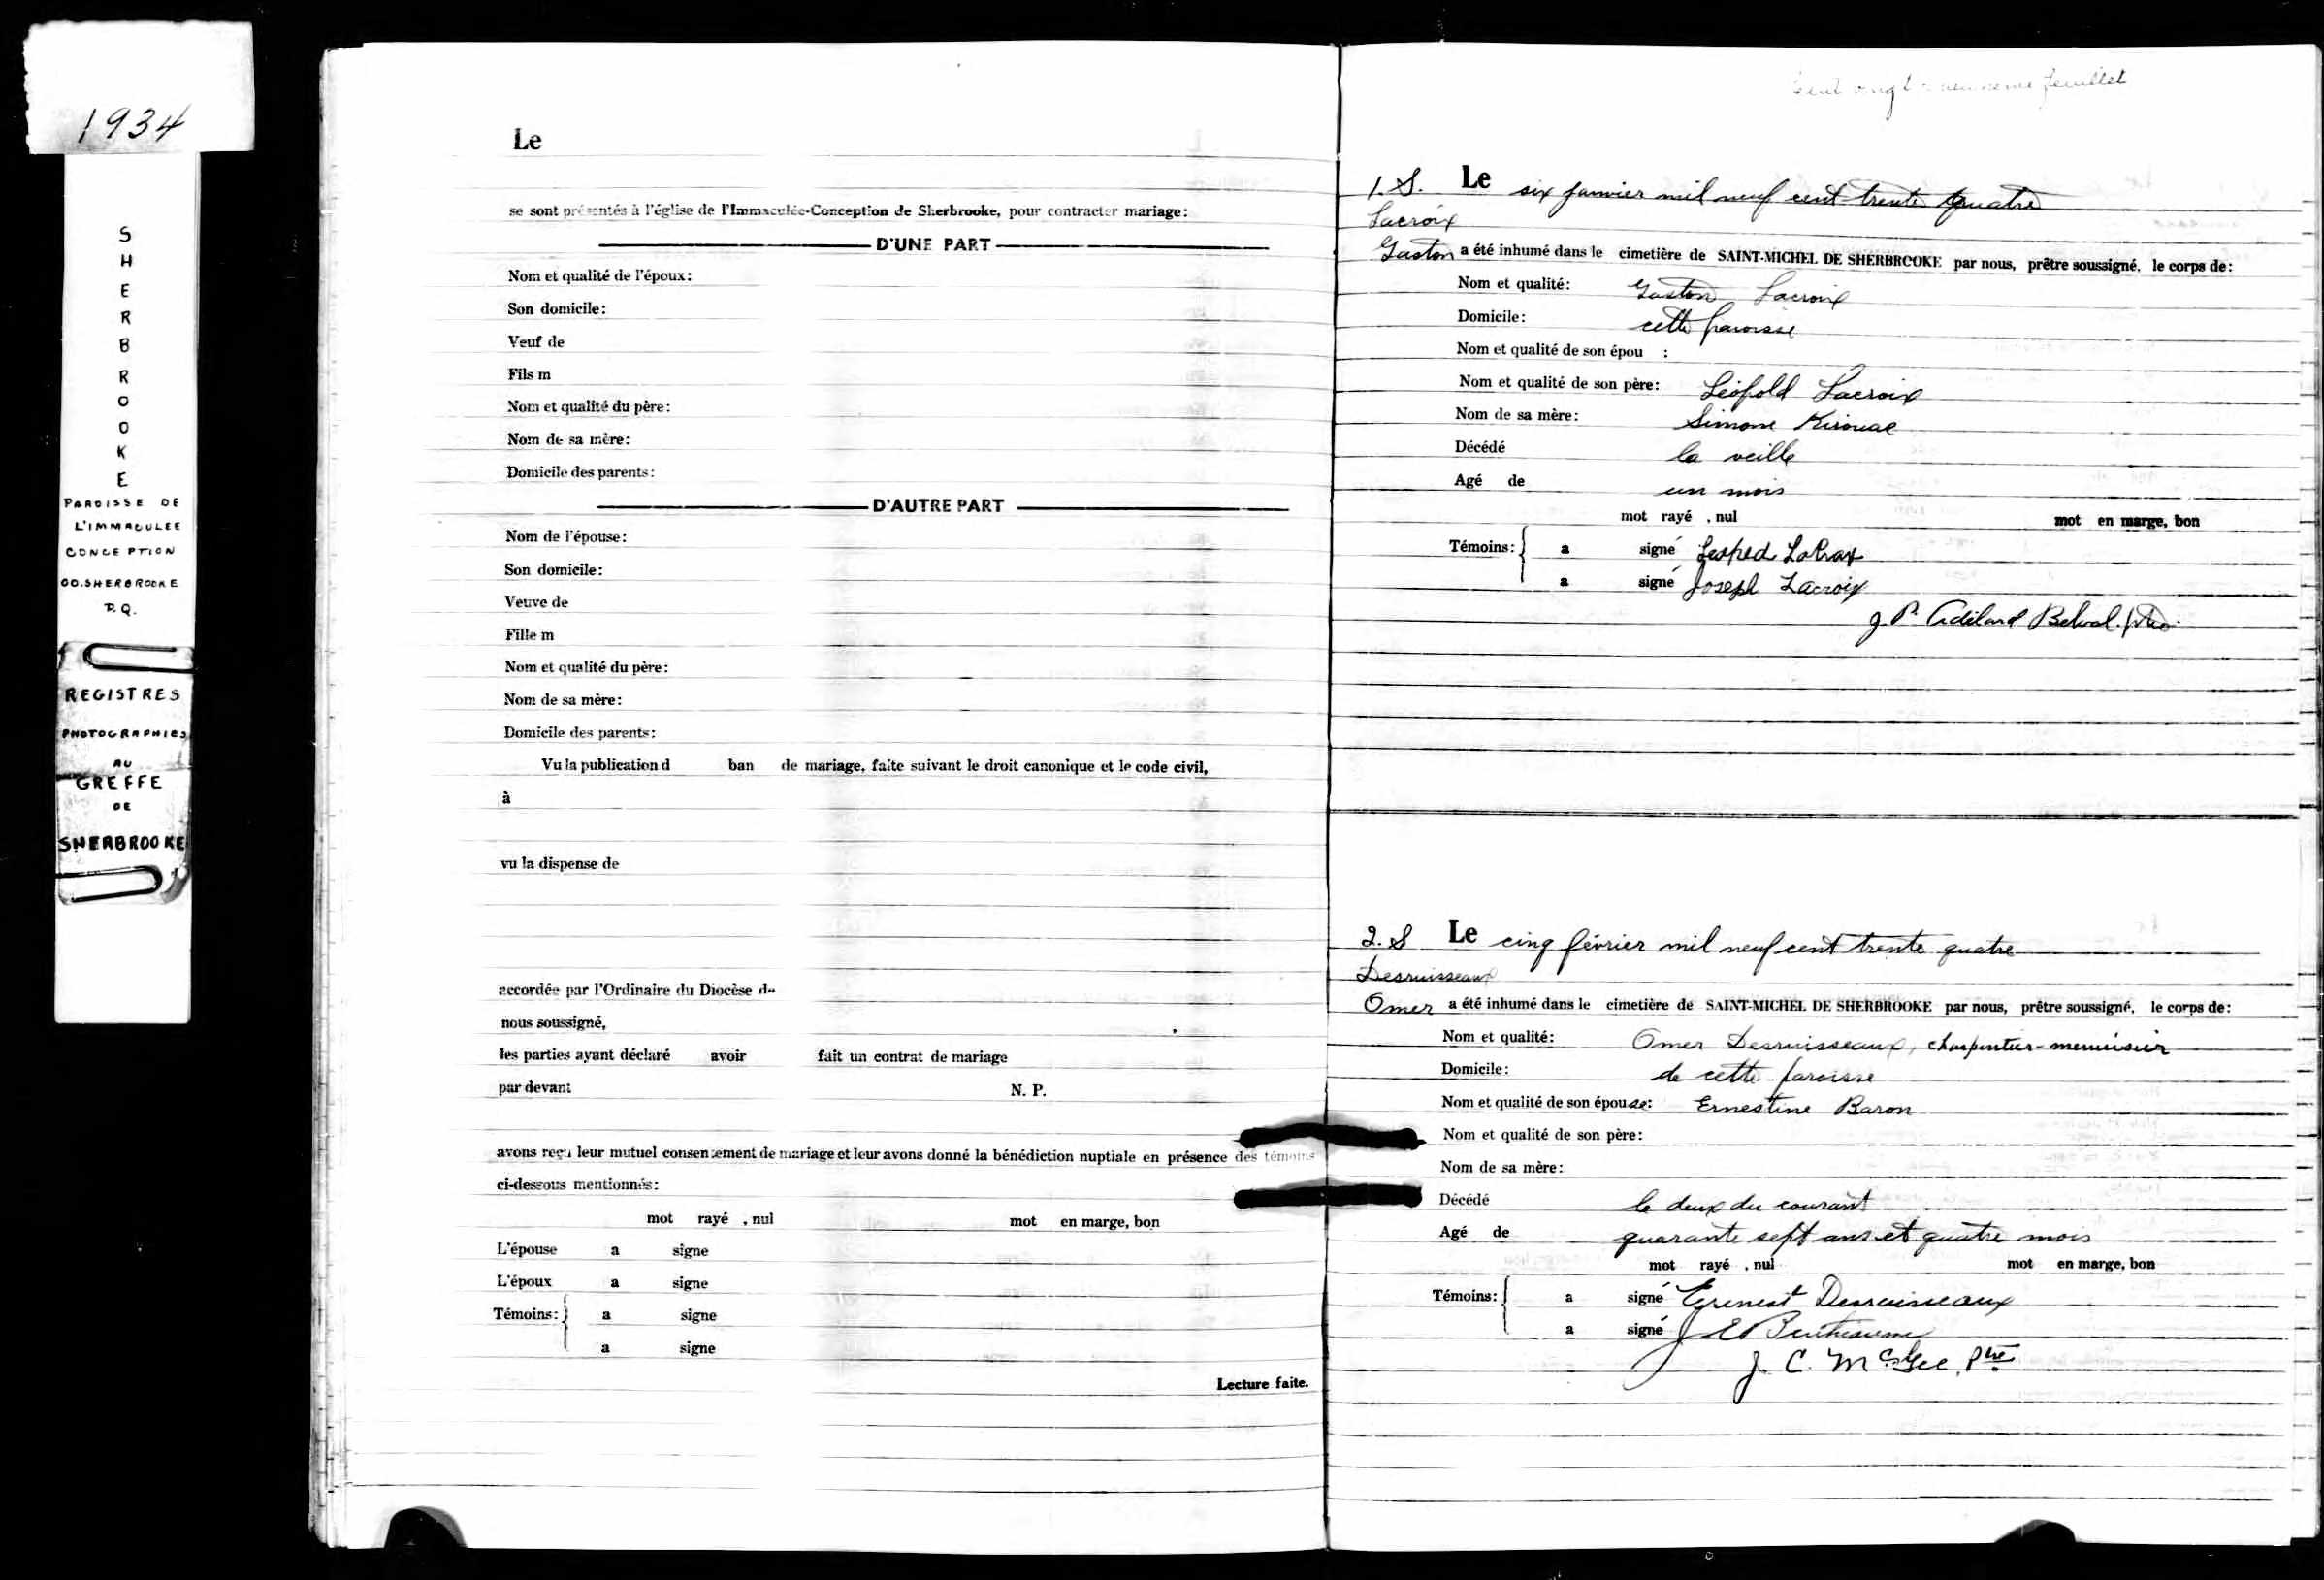 1934
S
H
E
R
B
R
O
O
K
E
PAROISSE DE
L'IMMACULEE
CONCEPTION
CO.SHERBROOKE
P.Q.
REGISTRES
PHOTOGRAPHIES
AU
GREFFE
DE
SHERBROOKE
Le
se sont présentés à l'église de l'Immaculée-Conception de Sherbrooke, pour contracter mariage:
D'UNE PART
Nom et qualité de l'époux:
Son domicile:
Veuf de
Fils m
Nom et qualité du père:
Nom de sa mère:
Domicile des parents:
D'AUTRE PART
Nom de l'épouse:
Son domicile:
Veuve de
Fille m
Nom et qualité du père:
Nom de sa mère:
Domicile des parents:
Vu la publication d ban de mariage, faite suivant le droit canonique et le code civil,
à
vu la dispense de
accordée par l'Ordinaire du Diocèse de
nous soussigné,
les parties ayant déclaré avoir fait un contrat de mariage
par devant N. P.
avons reçu leur mutuel consentement de mariage et leur avons donné la bénédiction nuptiale en présence des témoins
ci-dessous mentionnés:
mot rayé , nul mot en marge, bon
L'épouse a signe
L'époux a signe
Témoins: a signe
a signe
Lecture faite.
feuillet
1. S. Le six janvier mil neuf cent trente quatre
Lacroix
Gaston a été inhumé dans le cimetière de SAINT-MICHEL DE SHERBROOKE par nous, prêtre soussigné, le corps de:
Nom et qualité: Gaston Lacroix
Domicile: cette paroisse
Nom et qualité de son épou :
Nom et qualité de son père: Léopold Lacroix
Nom de sa mère: Simone Kirouac
Décédé la veille
Agé de un mois
mot rayé , nul mot en marge, bon
Témoins: a signé
a signé Joseph Lacroix
J. P. Adélard Belval. ptre.
2. S Le cinq février mil neuf cent trente quatre
Desruisseaux
Omer a été inhumé dans le cimetière de SAINT-MICHEL DE SHERBROOKE par nous, prêtre soussigné, le corps de:
Nom et qualité: Omer Desruisseaux, charpentier-menuisier
Domicile: de cette paroisse
Nom et qualité de son épouse: Ernestine Baron
Nom et qualité de son père:
Nom de sa mère:
Décédé le deux du courant
Agé de quarante sept ans et quatre mois
mot rayé , nul mot en marge, bon
Témoins: a signé Ernest Desruisseaux
a signé J E Berthiaume
J. C. McGee, Ptre